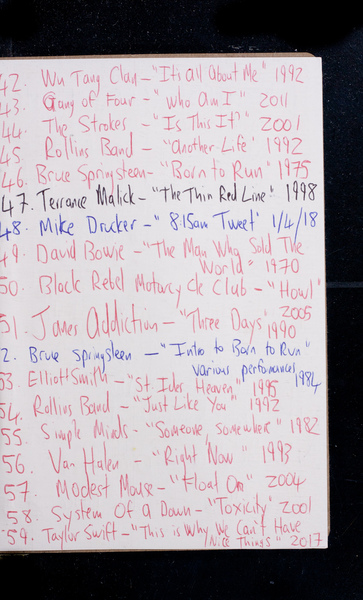 42. Wu Tang Clan - "It's all About Me" 1992
43. Gang of Four - "Who Am I" 2011
44. The Strokes - "Is This It?" 2001
45. Rollins Band - "Another Life" 1992
46. Bruce Springsteen - "Born to Run" 1975
47. Terrance Malick - "The Thin Red Line" 1998
48. Mike Drucker - "8:15am Tweet" 1/4/18
49. David Bowie - "The Man Who Sold The
World" 1970
50. Black Rebel Motorcycle Club - "Howl"
2005
51. Janes Addiction - "Three Days" 1990
2. Bruce Springsteen - "Intro to Born to Run"
various performances 1984
53. Elliott Smith - "St. Ides Heaven" 1995
54. Rollins Band - "Just Like You" 1992
55. Simple Minds - "Someone, somewhere" 1982
56. Van Halen - "Right Now" 1993
57. Modest Mouse - "Float On" 2004
58. System Of a Down - "Toxicity" 2001
59. Taylor Swift - "This is Why We Can't Have
Nice Things" 2017